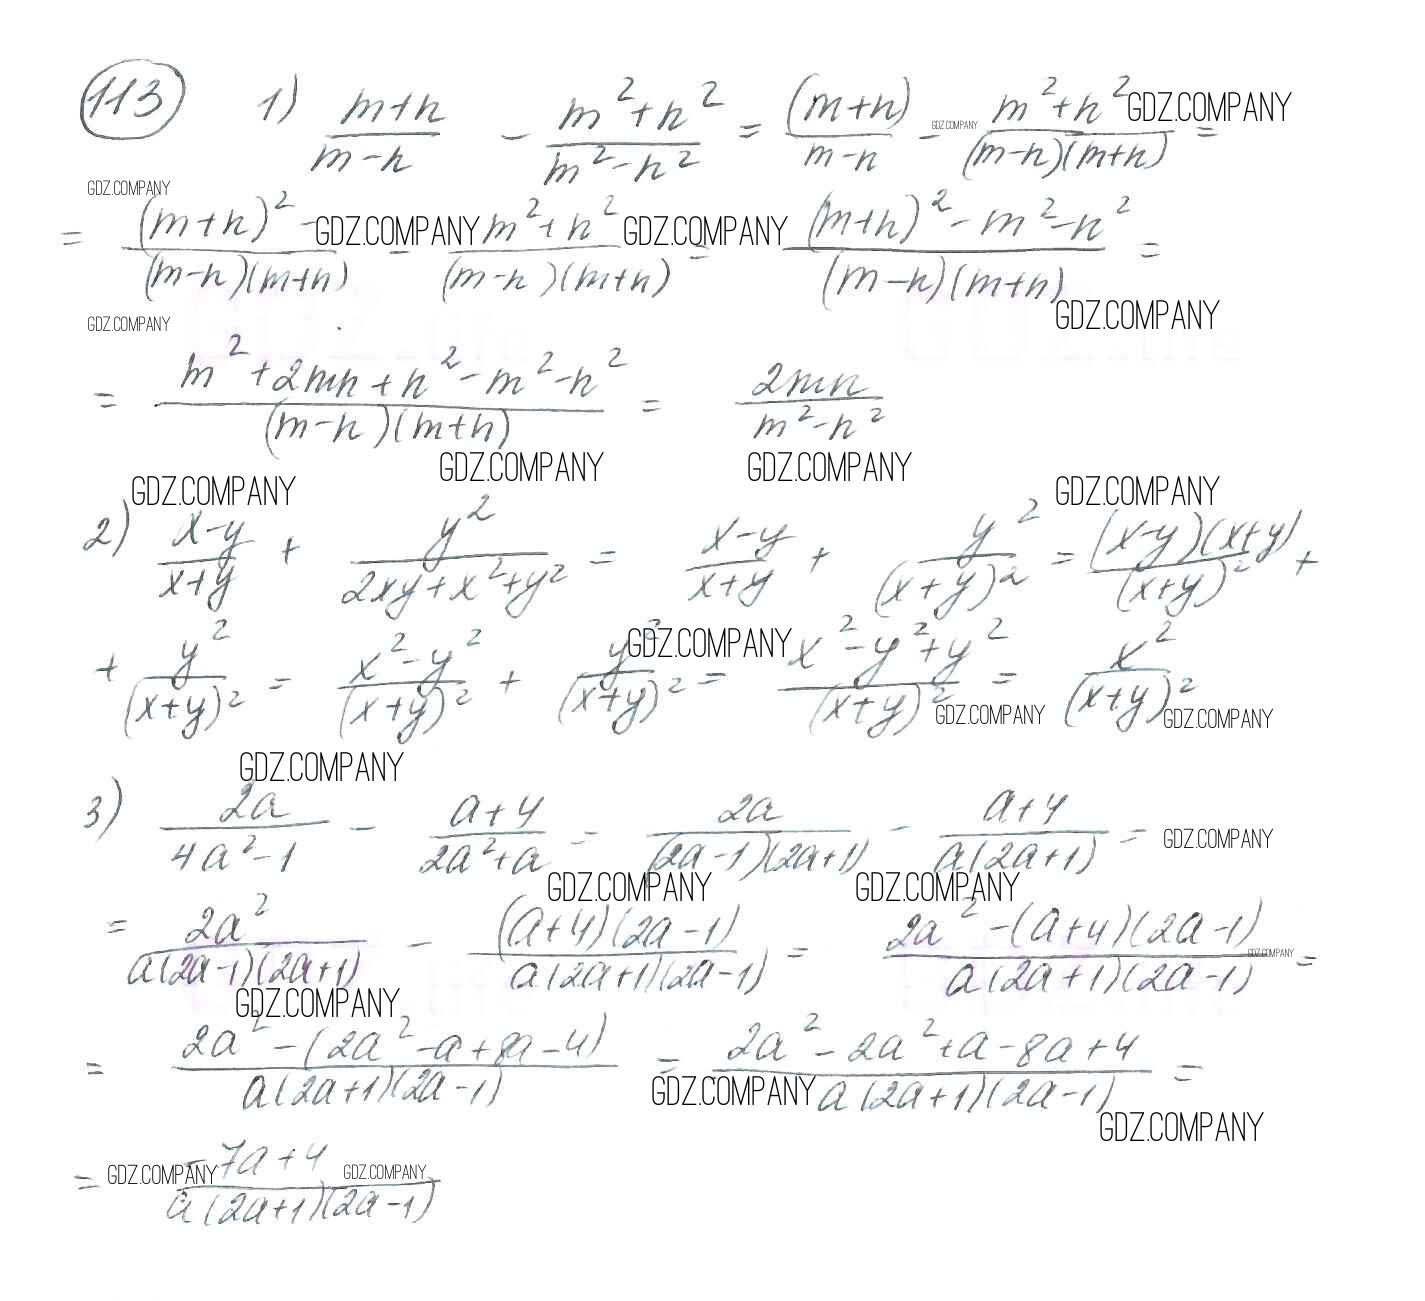 113 1) (m+n)/(m-n) - (m²+n²)/(m²-n²) = (m+n)/(m-n) - (m²+n²)/((m-n)(m+n)) =
GDZ.COMPANY GDZ.COMPANY
GDZ.COMPANY
= (m+n)²/((m-n)(m+n)) - (m²+n²)/((m-n)(m+n)) = ((m+n)²-m²-n²)/((m-n)(m+n)) =
GDZ.COMPANY GDZ.COMPANY
GDZ.COMPANY GDZ.COMPANY
= (m²+2mn+n²-m²-n²)/((m-n)(m+n)) = 2mn/(m²-n²)
GDZ.COMPANY GDZ.COMPANY
GDZ.COMPANY GDZ.COMPANY
2) (x-y)/(x+y) + y²/(2xy+x²+y²) = (x-y)/(x+y) + y²/(x+y)² = (x-y)(x+y)/(x+y)² +
+ y²/(x+y)² = (x²-y²)/(x+y)² + y²/(x+y)² = (x²-y²+y²)/(x+y)² = x²/(x+y)²
GDZ.COMPANY
GDZ.COMPANY GDZ.COMPANY
GDZ.COMPANY
3) 2a/(4a²-1) - (a+4)/(2a²+a) = 2a/((2a-1)(2a+1)) - (a+4)/(a(2a+1)) =
GDZ.COMPANY
GDZ.COMPANY GDZ.COMPANY
= 2a²/(a(2a-1)(2a+1)) - (a+4)(2a-1)/(a(2a+1)(2a-1)) = (2a²-(a+4)(2a-1))/(a(2a+1)(2a-1)) =
GDZ.COMPANY
GDZ.COMPANY
= (2a²-(2a²-a+8a-4))/(a(2a+1)(2a-1)) = (2a²-2a²+a-8a+4)/(a(2a+1)(2a-1)) =
GDZ.COMPANY
GDZ.COMPANY
= (-7a+4)/(a(2a+1)(2a-1))
GDZ.COMPANY GDZ.COMPANY